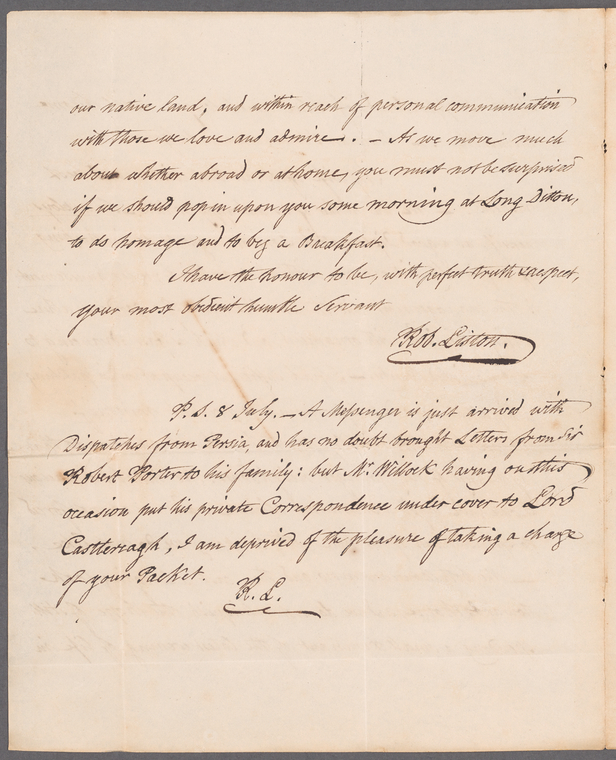 our native land, and within reach of personal communication
with those we love and admire. – As we move much
about whether abroad or at home, you must not be surprised
if we should pop in upon you some morning at Long Ditton,
to do homage and to beg a Breakfast.
I have the honour to be, with perfect truth & respect,
your most obedient humble Servant
Rob. Liston.
P. S. 8 July. – A Messenger is just arrived with
Dispatches from Persia, and has no doubt brought Letters from Sir
Robert Porter to his family: but Mr. Willock having on this
occasion put his private Correspondence under cover to Lord
Castlereagh, I am deprived of the pleasure of taking a charge
of your Packet.
R. L.